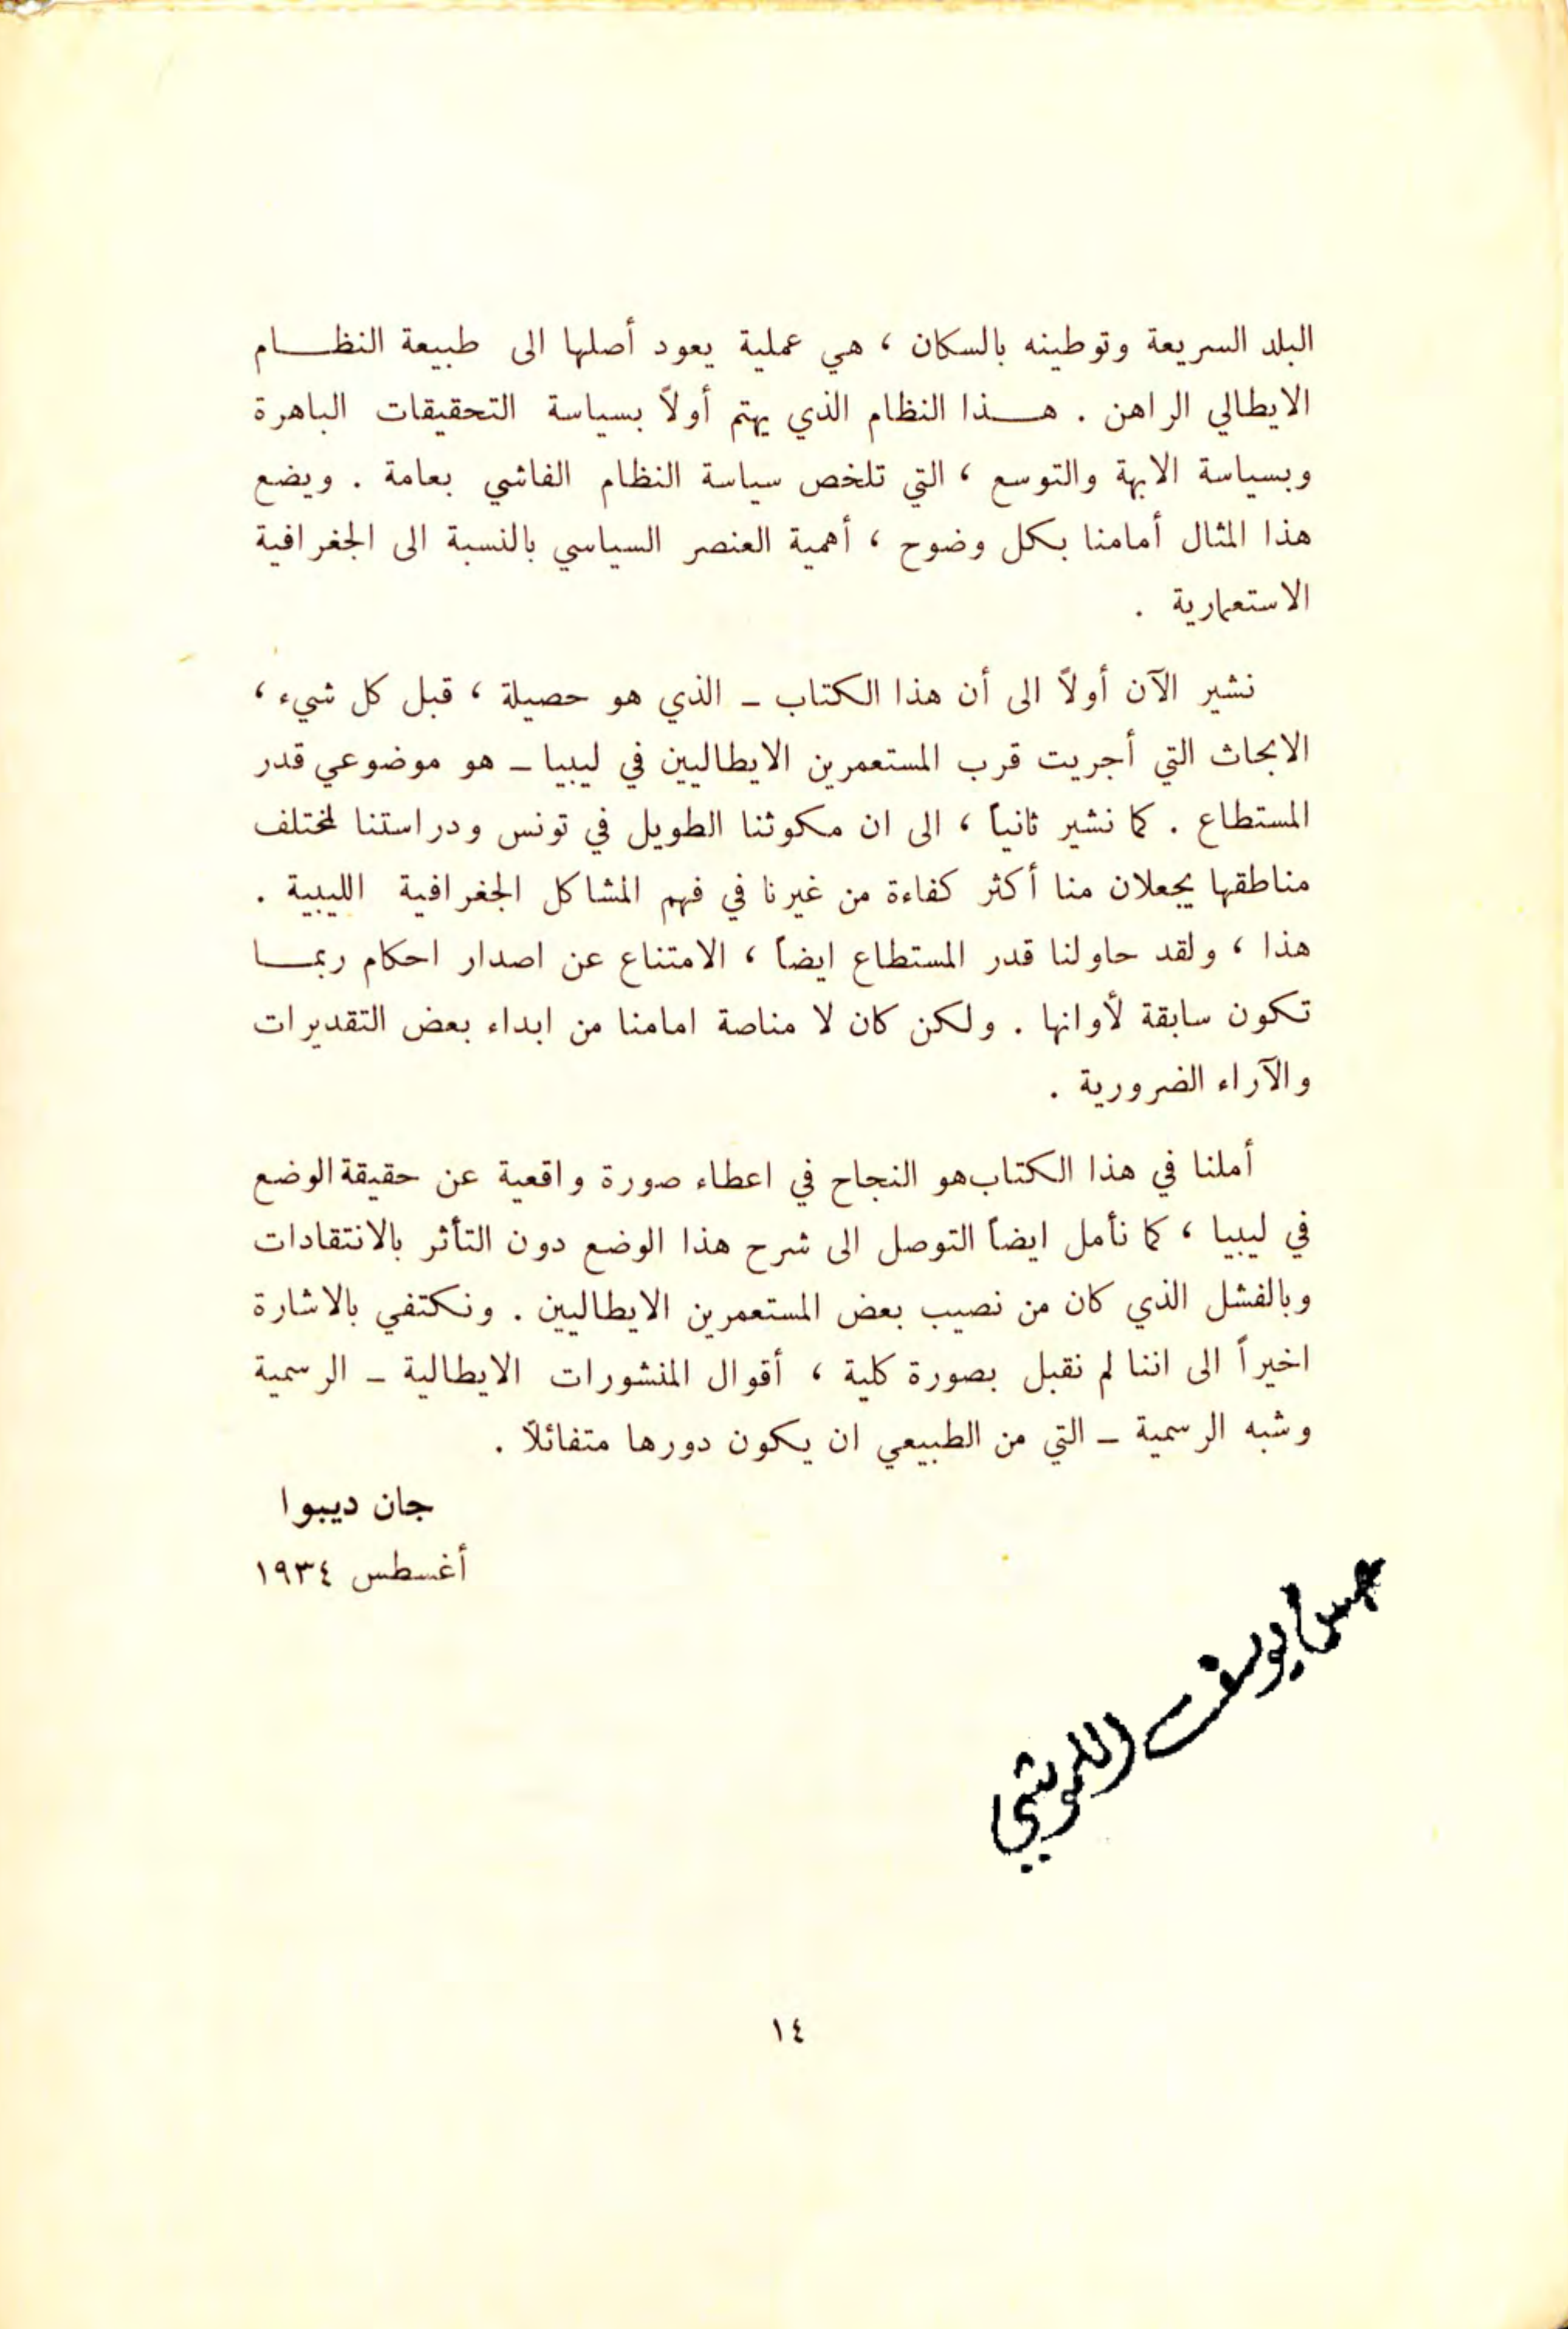 البلد السريعة وتوطينه بالسكان ، هي عملية يعود أصلها الى طبيعة النظـــام
الايطالي الراهن . هـــذا النظام الذي يهتم أولاً بسياسة التحقيقات الباهرة
وبسياسة الابهة والتوسع ، التي تلخص سياسة النظام الفاشي بعامة . ويضع
هذا المثال أمامنا بكل وضوح ، أهمية العنصر السياسي بالنسبة الى الجغرافية
الاستعمارية .
نشير الآن أولاً الى أن هذا الكتاب – الذي هو حصيلة ، قبل كل شيء ،
الابحاث التي أجريت قرب المستعمرين الايطاليين في ليبيا – هو موضوعي قدر
المستطاع . كما نشير ثانياً ، الى ان مكوثنا الطويل في تونس ودراستنا لمختلف
مناطقها يجعلان منا أكثر كفاءة من غيرنا في فهم المشاكل الجغرافية الليبية .
هذا ، ولقد حاولنا قدر المستطاع ايضاً ، الامتناع عن اصدار احكام ربمـــا
تكون سابقة لأوانها . ولكن كان لا مناصة امامنا من ابداء بعض التقديرات
والآراء الضرورية .
أملنا في هذا الكتاب هو النجاح في اعطاء صورة واقعية عن حقيقة الوضع
في ليبيا ، كما نأمل ايضاً التوصل الى شرح هذا الوضع دون التأثر بالانتقادات
وبالفشل الذي كان من نصيب بعض المستعمرين الايطاليين . ونكتفي بالاشارة
اخيراً الى اننا لم نقبل بصورة كلية ، أقوال المنشورات الايطالية – الرسمية
وشبه الرسمية – التي من الطبيعي ان يكون دورها متفائلاً .
جان ديبوا
أغسطس ١٩٣٤
يوسف
١٤